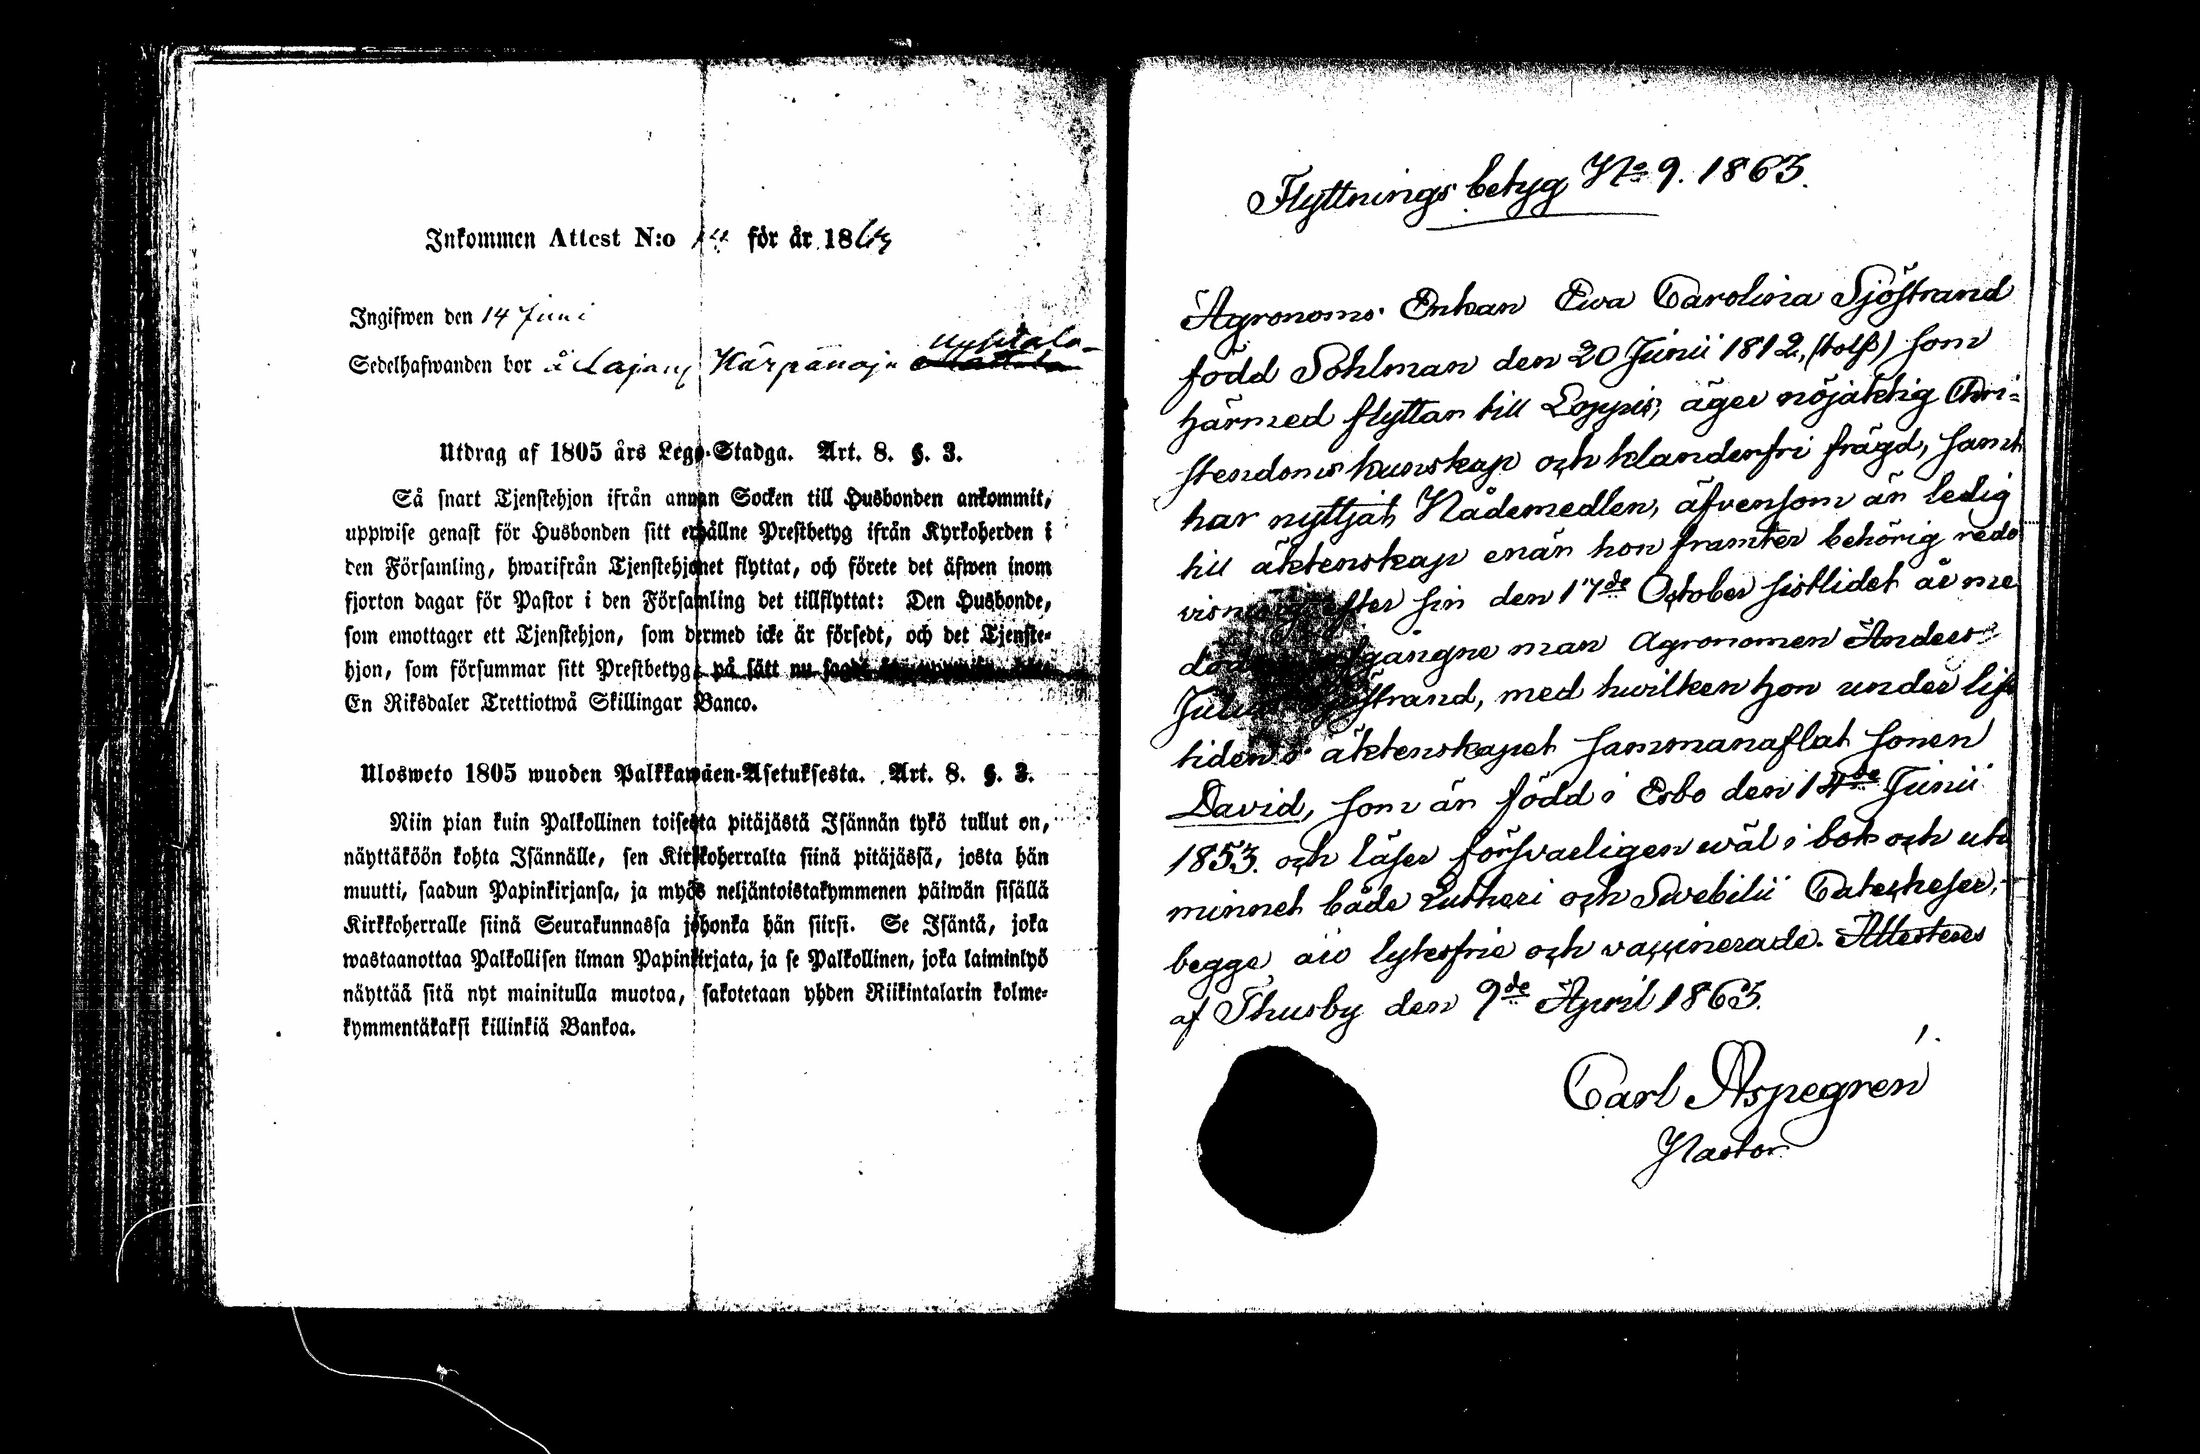 Inkommen Attest N:o 14 för år 1863
Ingifwen den 14 Juni
Sedelhafwanden bor å Lajang Kärpänoja
Utdrag af 1805 års Lego-Stadga. Art. 8. §. 3.
Så snart Tjenstehjon ifrån annan Socken till Husbonden ankommit,
uppwise genast för Husbonden sitt erhållne Prestbetyg ifrån Kyrkoherden i
den Församling, hwarifrån Tjenstehjonet flyttat, och förete det äfwen inom
fjorton dagar för Pastor i den Församling det tillflyttat: Den Husbonde,
som emottager ett Tjenstehjon, som dermed icke är försedt, och det Tjenste-
hjon, som försummar sitt Prestbetyg på sätt nu sagdt
En Riksdaler Trettiotwå Skillingar Banco.
Ulosweto 1805 wuoden Palkkawäen-Asetuksesta. Art. 8. §. 3.
Niin pian kuin Palkollinen toisesta pitäjästä Isännän tykö tullut on,
näyttäköön kohta Isännälle, sen Kirkkoherralta siinä pitäjässä, josta hän
muutti, saadun Papinkirjansa, ja myös neljäntoistakymmenen päiwän sisällä
Kirkkoherralle siinä Seurakunnassa johonka hän siirsi. Se Isäntä, joka
wastaanottaa Palkollisen ilman Papinkirjata, ja se Palkollinen, joka laiminlyö
näyttää sitä nyt mainitulla muotoa, sakotetaan yhden Riikintalarin kolme-
kymmentäkaksi killinkiä Bankoa.
Flyttnings betyg No 9. 1863.
Agronoms Enkan Ewa Carolina Sjöstrand
född Sohlman den 20 Junii 1812, (tolf) som
härmed flyttar till Loppis, äger nöjaktig Chri=
stendoms kunskap och klanderfri frägd, samt
har nyttjat Nådemedlen, äfvensom är ledig
till äktenskap enär hon framter behörig redo
visning efter sin den 17de October sistlidet år me
döden afgångne man Agronomen Anders
Julius Sjöstrand, med hwilken hon under lifs
tiden i äktenskapet sammanaflat sonen
David, som är född i Esbo den 14de Junii
1853. och läser försvarligen wäl i bok och ut
minnet både Lutheri och Swebilii Catecheser,
begge äro lytesfrie och vaccinerade. Attesteres
af Thusby den 9de April 1863.
Carl Aspegren
Pastor.